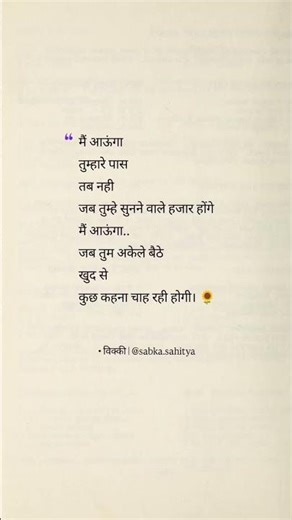 ❝ मैं आऊंगा
तुम्हारे पास
तब नही
जब तुम्हे सुनने वाले हजार होंगे
मैं आऊंगा..
जब तुम अकेले बैठे
खुद से
कुछ कहना चाह रही होगी। 🌻
• विक्की | @sabka.sahitya